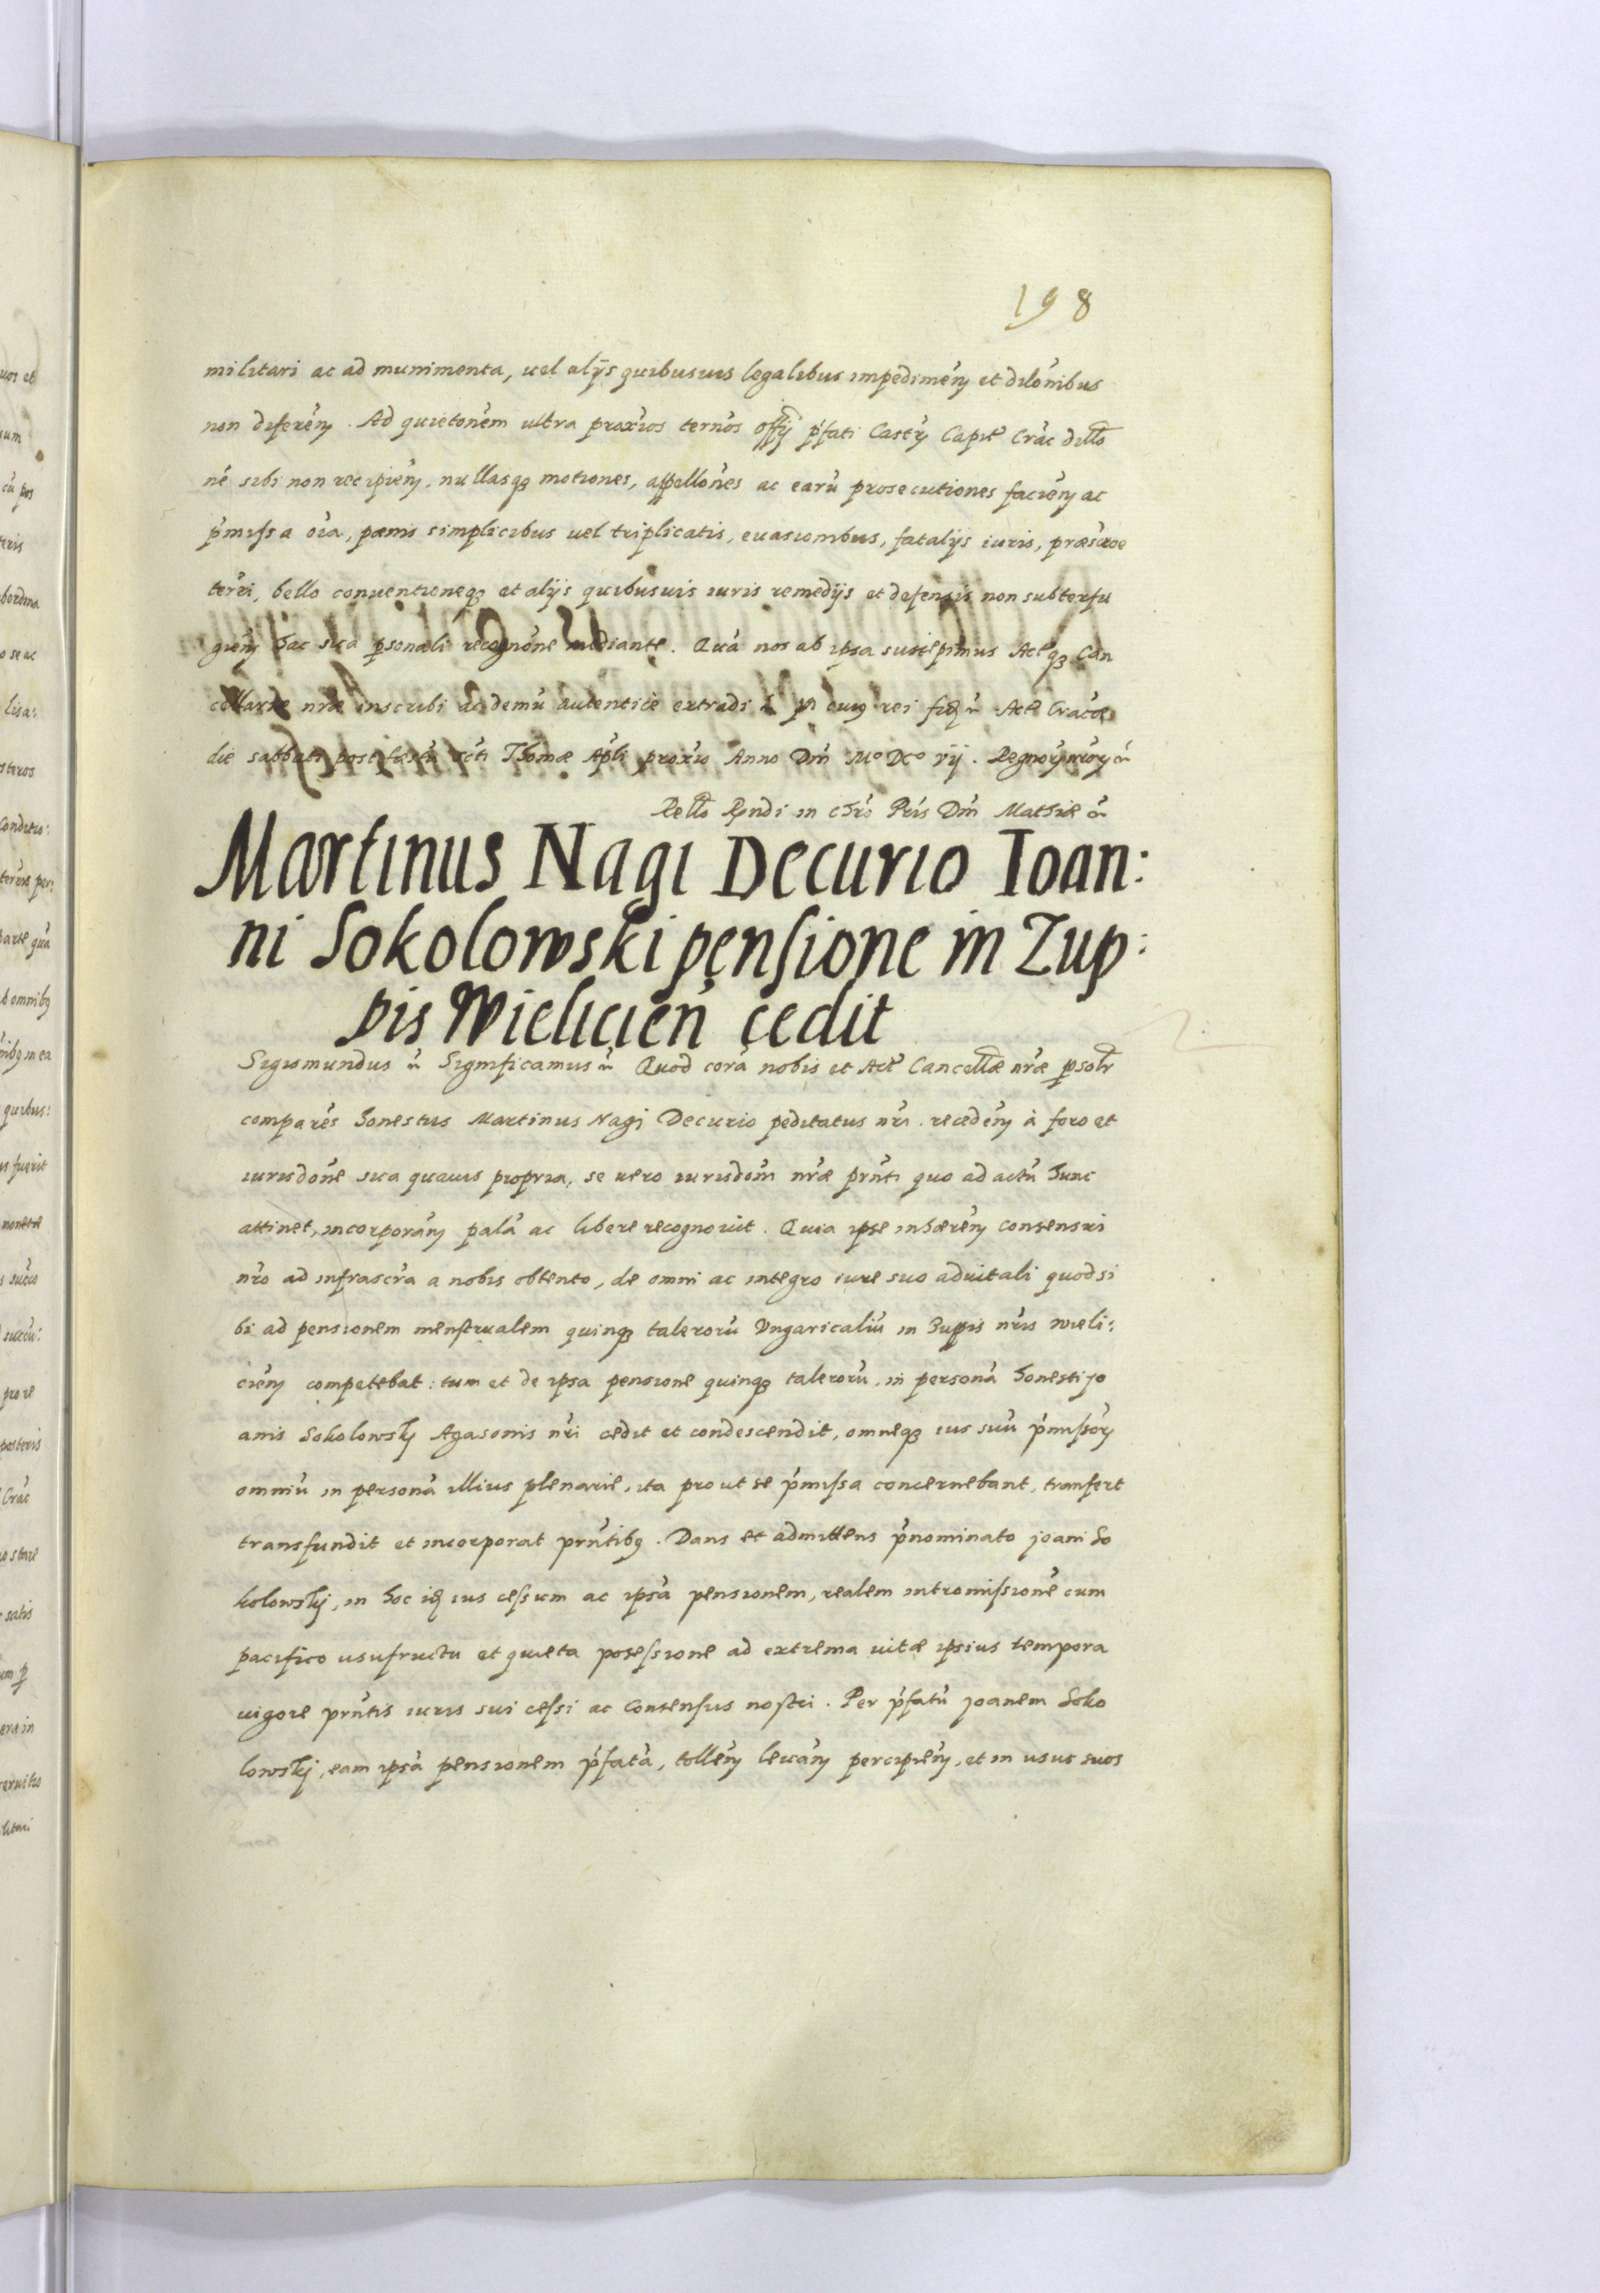 198
militari ac ad munimenta, uel alijs quibusuis legalibus impedimen͂ et dilon͂ibus
non diferen͂. Ad quieton͂em ultra prox͂ios tern͂os offij p͂fati Castr͂ Capit͂ Crac͂ dillo
ne͂ sibi non recipien͂, nullasq3 motiones, appellon͂es ac earu͂ prosecutiones facien͂ ac
p͂missa o͂ia, pœnis simplicibus uel triplicatis, euasionibus, fatalijs iuris,
bello conuentioneq3 et alijs quibusuis iuris remedijs et defensis non subterfu
gien͂ hac sua p̱sonali recogno͂ne mediante. Qua͂ nos ab ipsa suscepimus Act͂q3 Can
cellariæ nr͂æ inscribi ac demu͂ autentice extradi cuius rei fid Act͂ Crac͂
die sabbati post festu͂ s͂cti Thomæ Ap͂li prox͂io Anno Dm͂ Mº DCº vij. Regnor͂ nr͂or͂
Rello Rndi in chr͂o Pr͂is Dm͂ Mathiæ
Martinus Nagi Decurio Ioan:
ni Sokolowski pensione in Zup:
pis Wielicien͂ cedit
Sigismundus Significamus Quod cora͂ nobis et Act͂ Cancellæ nr͂æ p̱solr
compare͂s honestus Martinus Nagi Decurio peditatus nr͂i. receden͂ à foro et
iurisdo͂ne sua quauis propria, se uero iurisdo͂ni nr͂æ prn͂ti quo ad actu͂ hunc
attinet, incorporan͂ pala͂ ac libere recognouit. Quia ipse inhæren͂ consensui
nr͂o ad infrascr͂a a nobis obtento, de omni ac integro iure suo aduitali quod si
bi ad pensionem menstrualem quinq3 taleroru͂ Vngaricaliu͂ in Zuppis nr͂is Wieli:
cien͂ competebat: tum et de ipsa pensione quinq3 taleroru͂, in persona͂ honesti Jo
anis Sokolowskj Agasonis nr͂i cedit et condescendit, omneq3 ius suu͂ p͂missor͂
omniu͂ in persona͂ illius plenarie, ita prout se p͂missa concernebant, transfert
transfundit et incorporat prn͂tib9. Dans et admittens p͂nominato Joani So
kolowskj, in hoc id ius cessum ac ipsa͂ pensionem, realem intromissione͂ cum
pacifico usufructu et quieta posessione ad extrema uitæ ipsius tempora
uigore prn͂tis iuris sui cessi ac consensus nostri. Per p͂fatu͂ Joanem Soko
lowskj, eam ipsa͂ pensionem p͂fata͂, tollen͂ leuan͂ percipien͂, et in usus suos